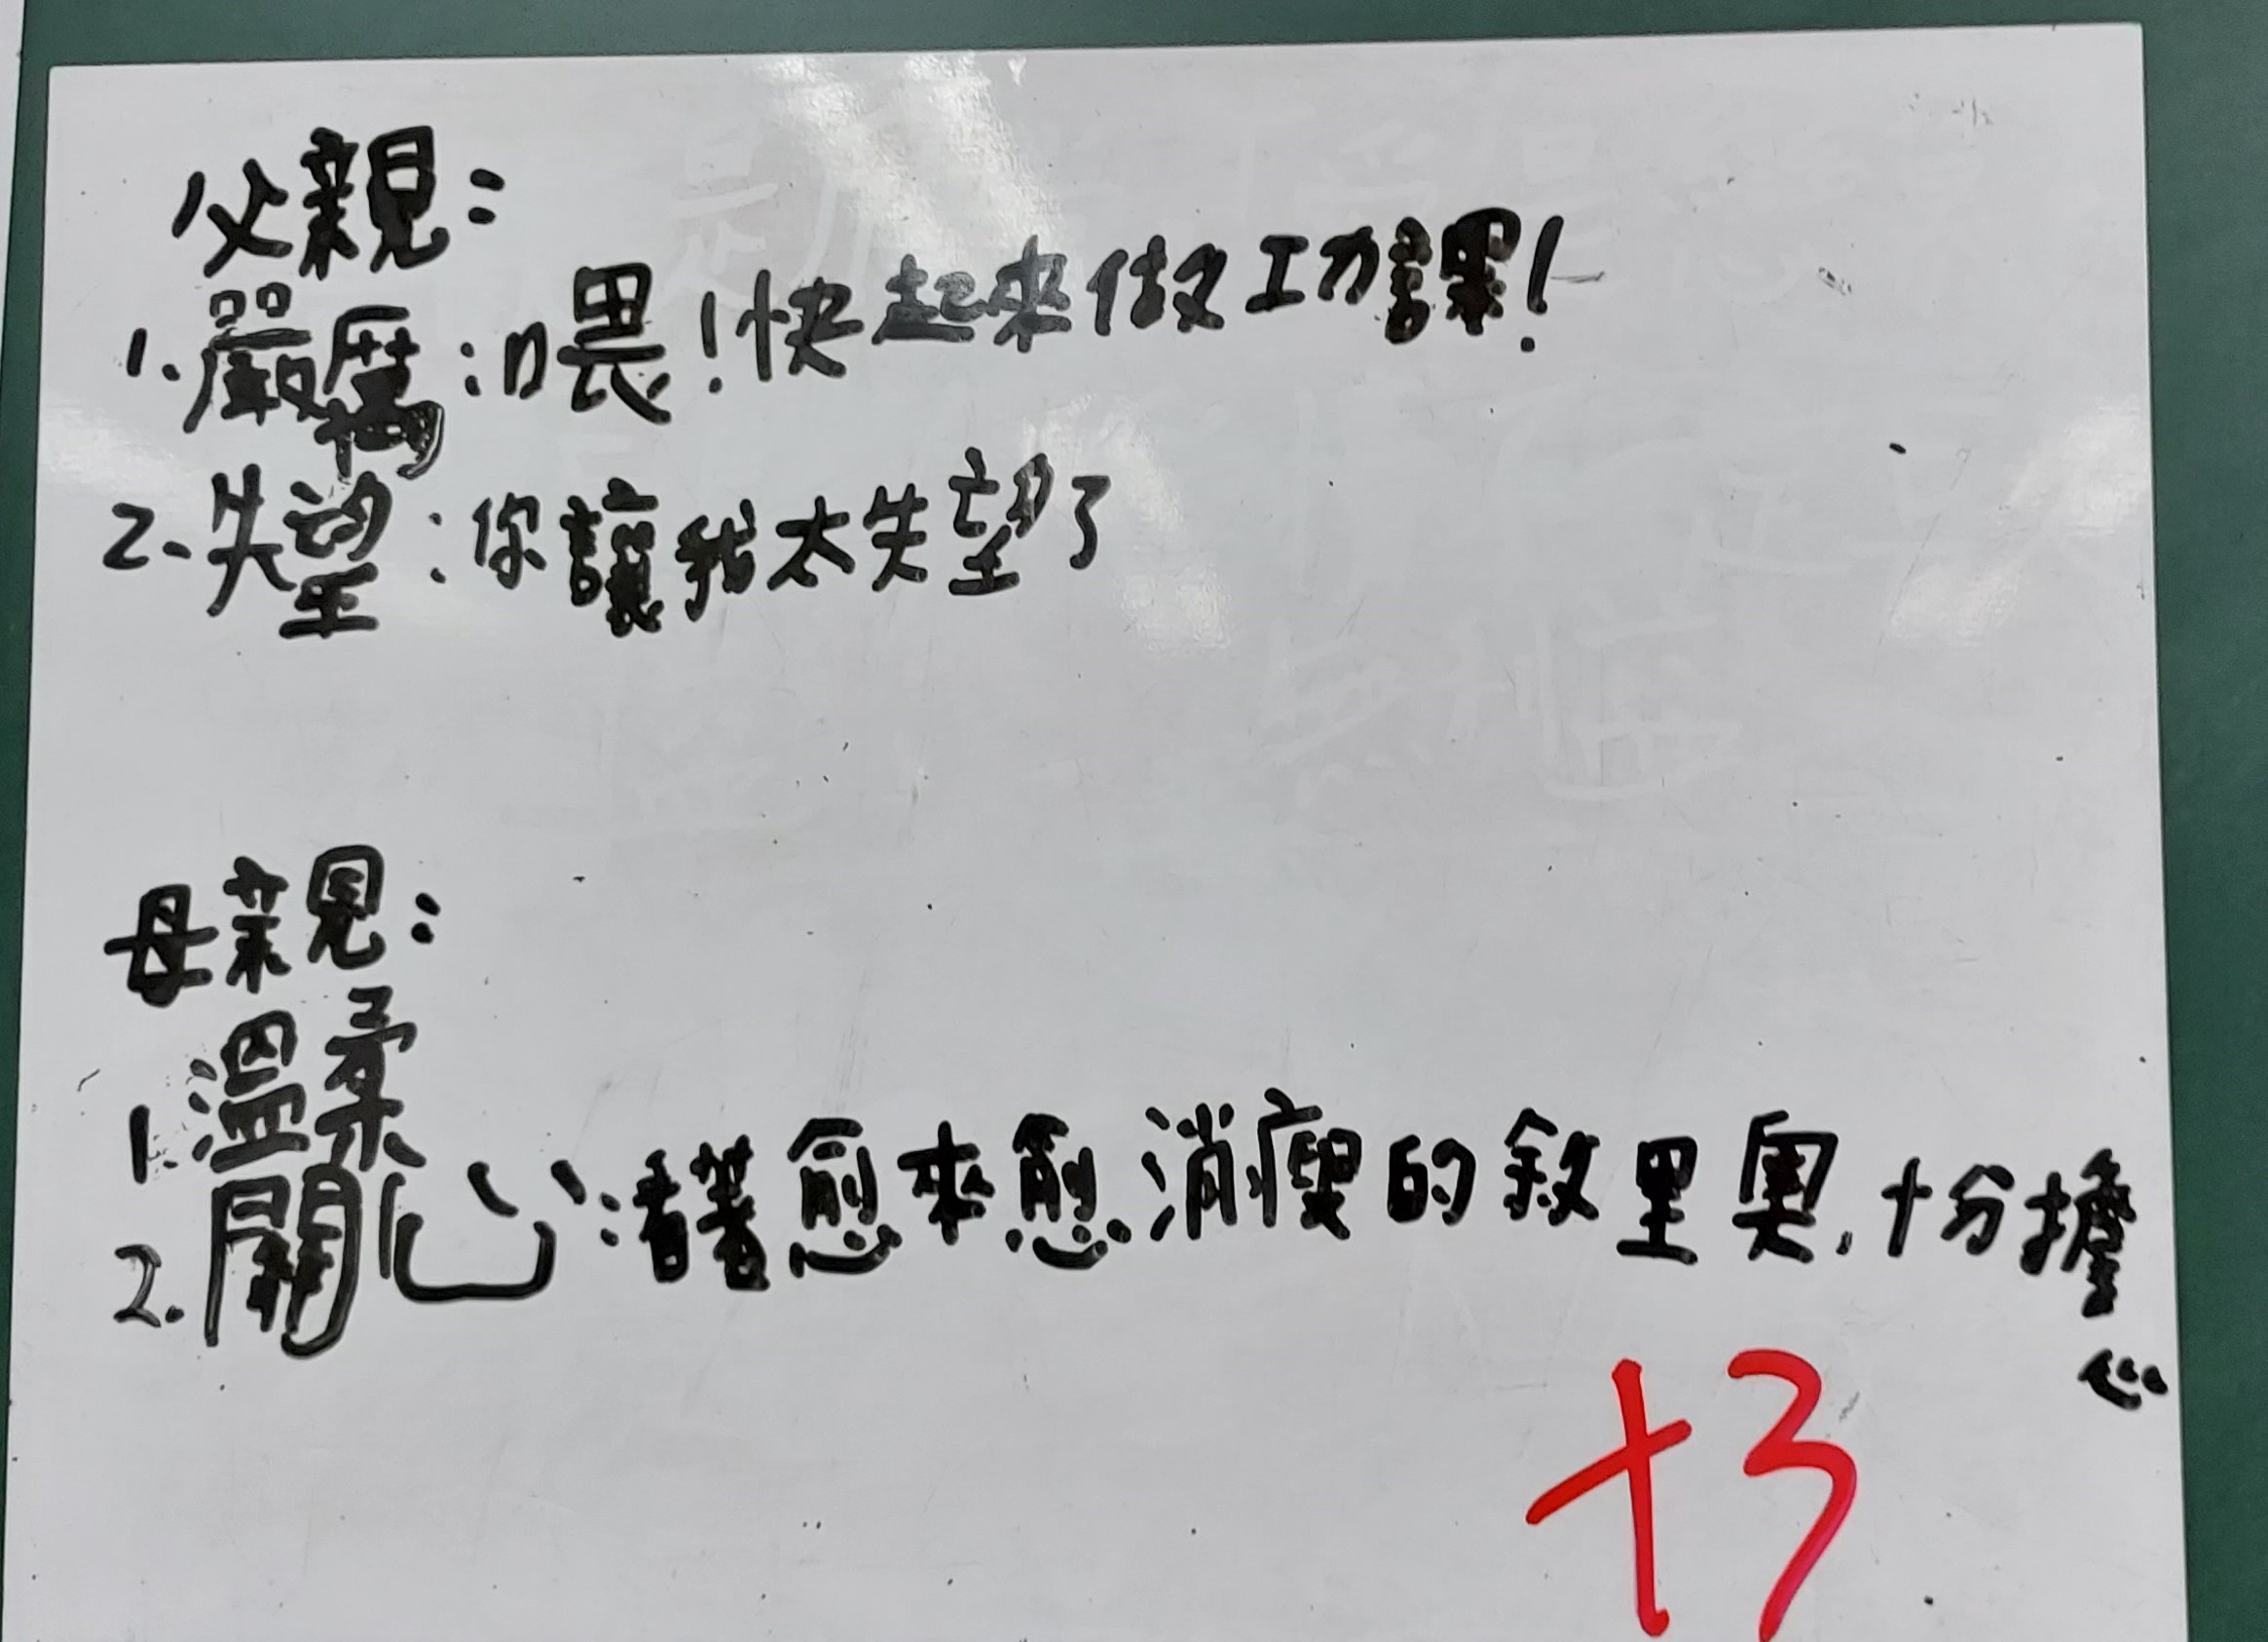 父親：
1.嚴厲：喂！快起來做功課！
2.失望：你讓我太失望了
母親：
1.溫柔
2.關心：看著愈來愈消瘦的敘里奧，十分擔
心
+3